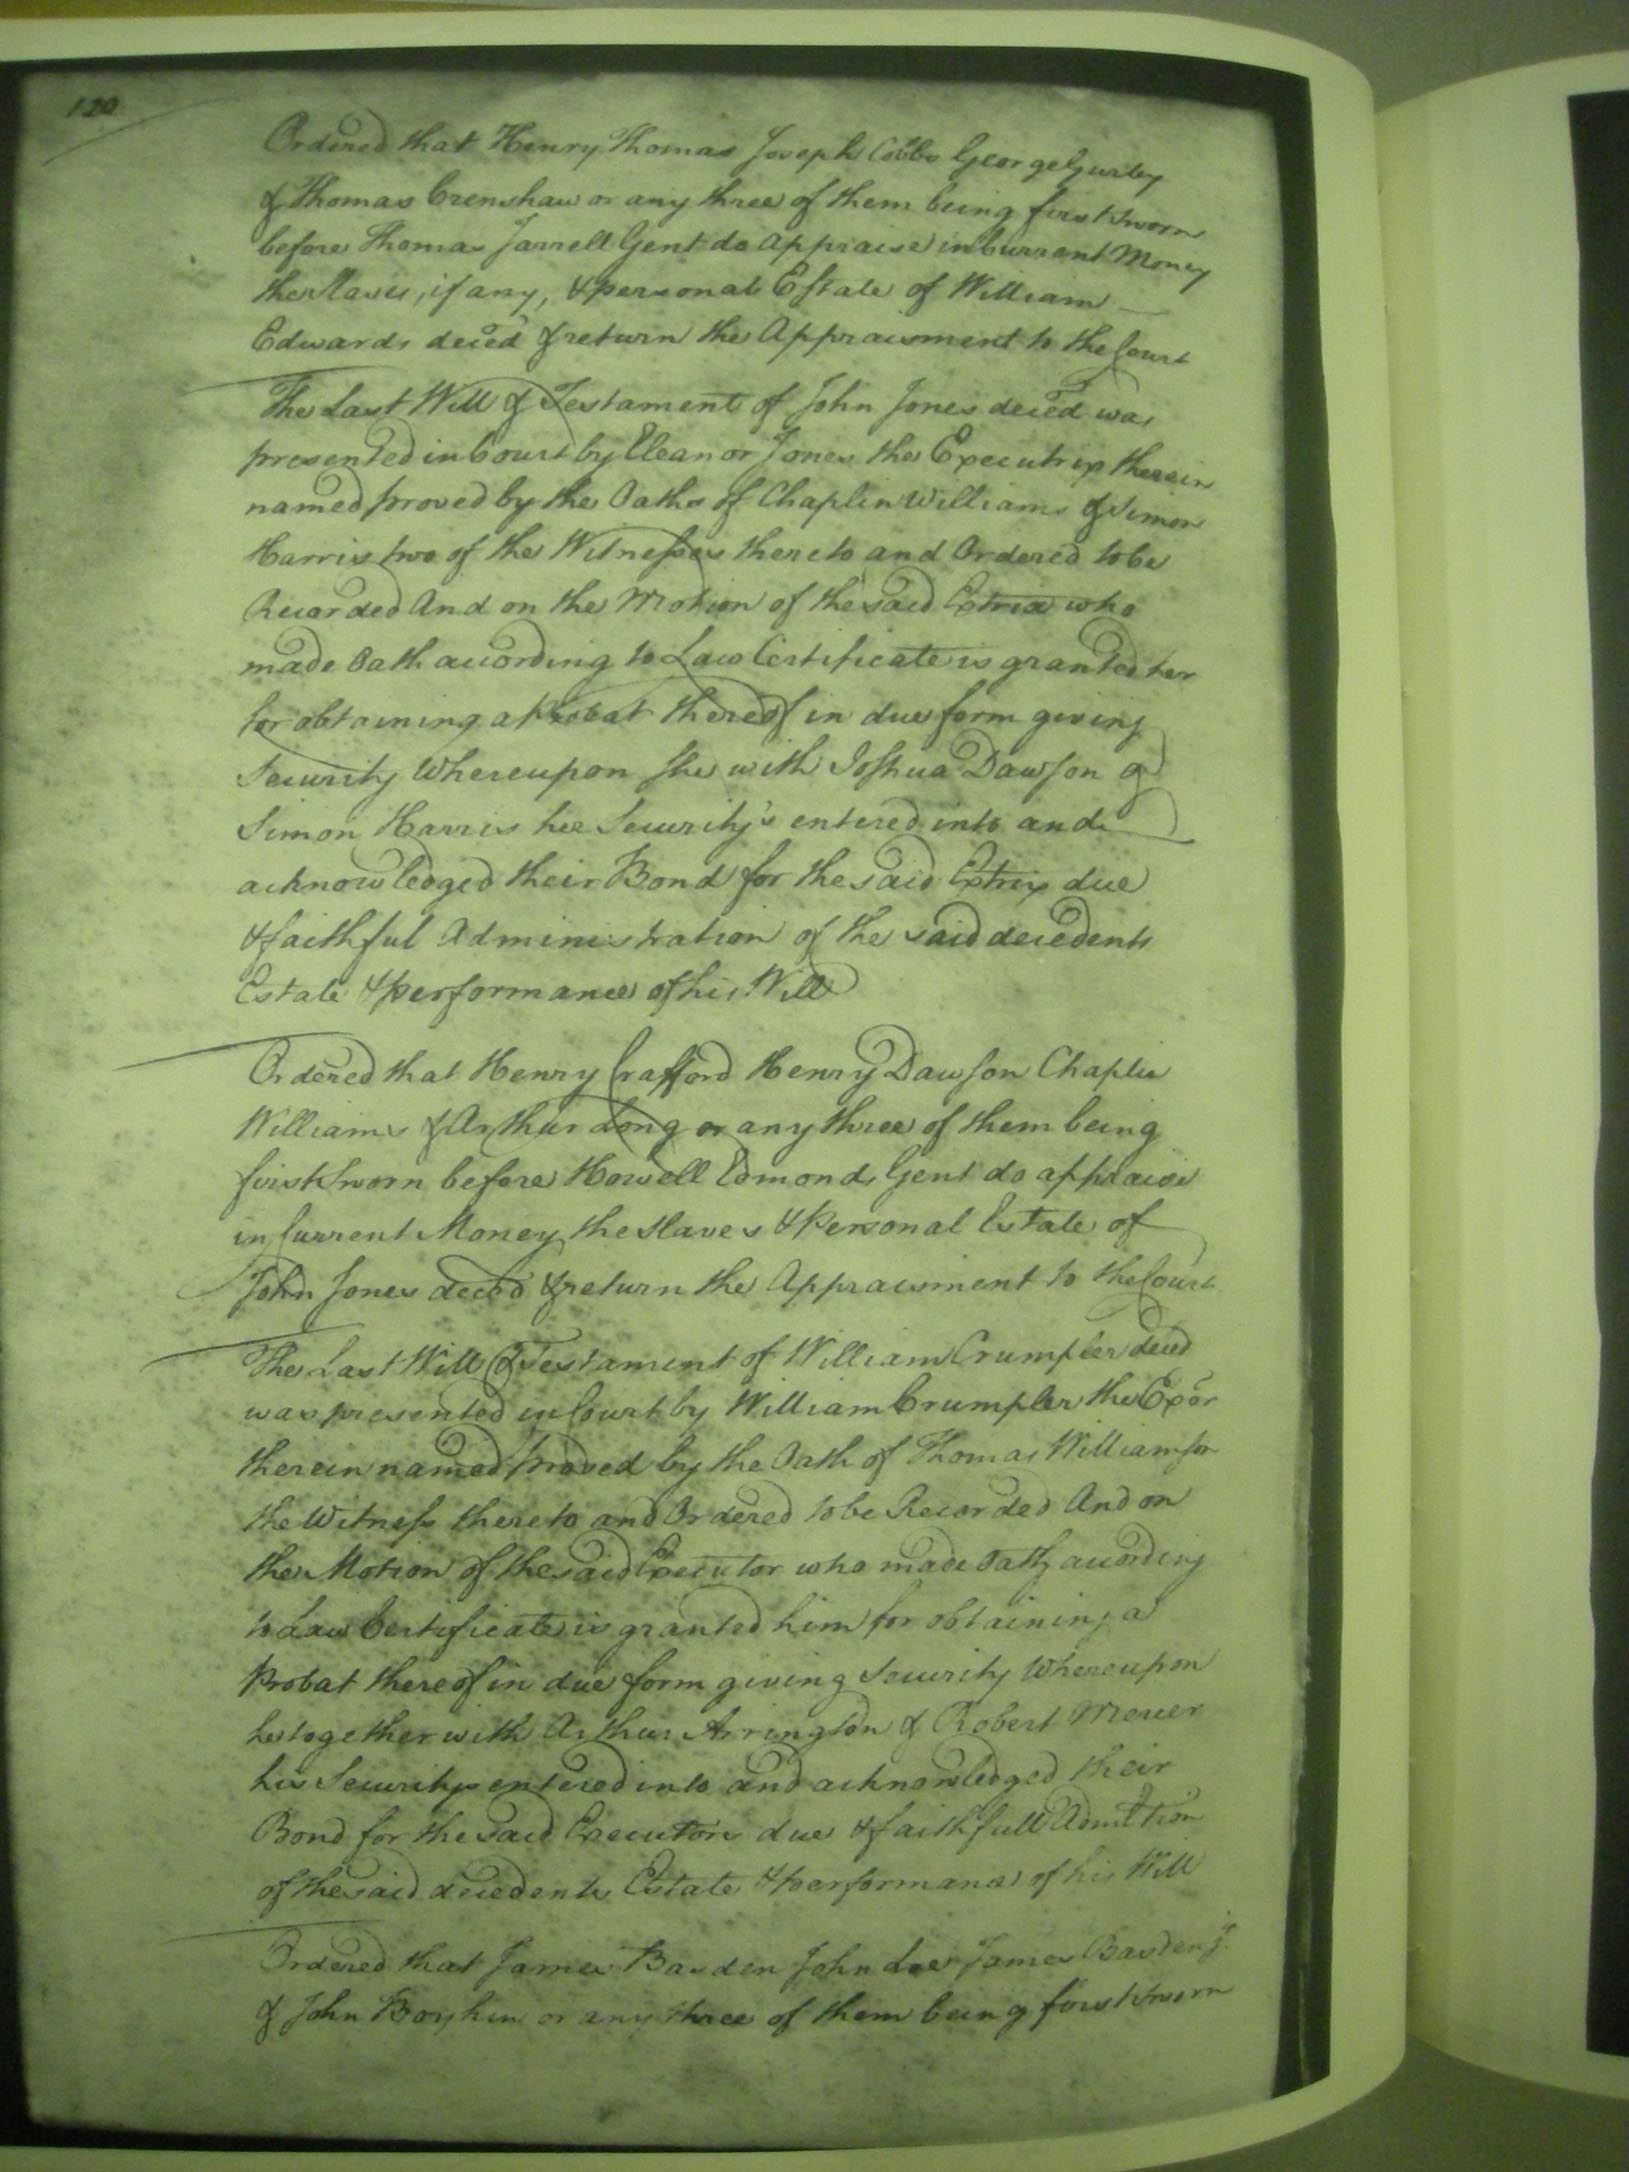 120
Ordered that Henry Thomas Joseph Cobbs George Gurley
& Thomas Crenshaw or any three of them being first Sworn
before Thomas Jarrell Gent do Appraise in Current Money
the Slaves, if any, & personal Estate of William
Edwards deced & return the Appraisment to the Court
The Last Will & Testament of John Jones deced was
presented in Court by Eleanor Jones the Executrix therein
named proved by the Oaths of Chaplin Williams & Simon
Harris two of the Witnesses thereto and Ordered to be
Recorded And on the Motion of the said Extrix who
made Oath according to Law Certificate is granted her
for obtaining a Probat thereof in due form giving
Security Whereupon She with Joshua Dawson &
Simon Harris her Security's entered into and
acknowledged their Bond for the said Extrix due
& faithful Administration of the said decedents
Estate & performance of his Will
Ordered that Henry Crafford Henry Dawson Chaplin
Williams & Arthur Long or any three of them being
first Sworn before Howell Edmonds Gent do appraise
in Current Money the Slaves & Personal Estate of
John Jones deced & return the Appraisment to the Court
The Last Will & Testament of William Crumpler deced
was presented in Court by William Crumpler the Exor
therein named proved by the Oath of Thomas Williamson
the Witness thereto and Ordered to be Recorded And on
the Motion of the said Executor who made Oath according
to Law Certificate is granted him for obtaining a
Probat thereof in due form giving Security Whereupon
he together with Arthur Arrington & Robert Mercer
his Securitys entered into and acknowledged their
Bond for the said Executors due & faithfull Admtion
of the said decedents Estate & performance of his Will
Ordered that James Barden John Lee James Barden Jr
& John Boykin or any three of them being first Sworn